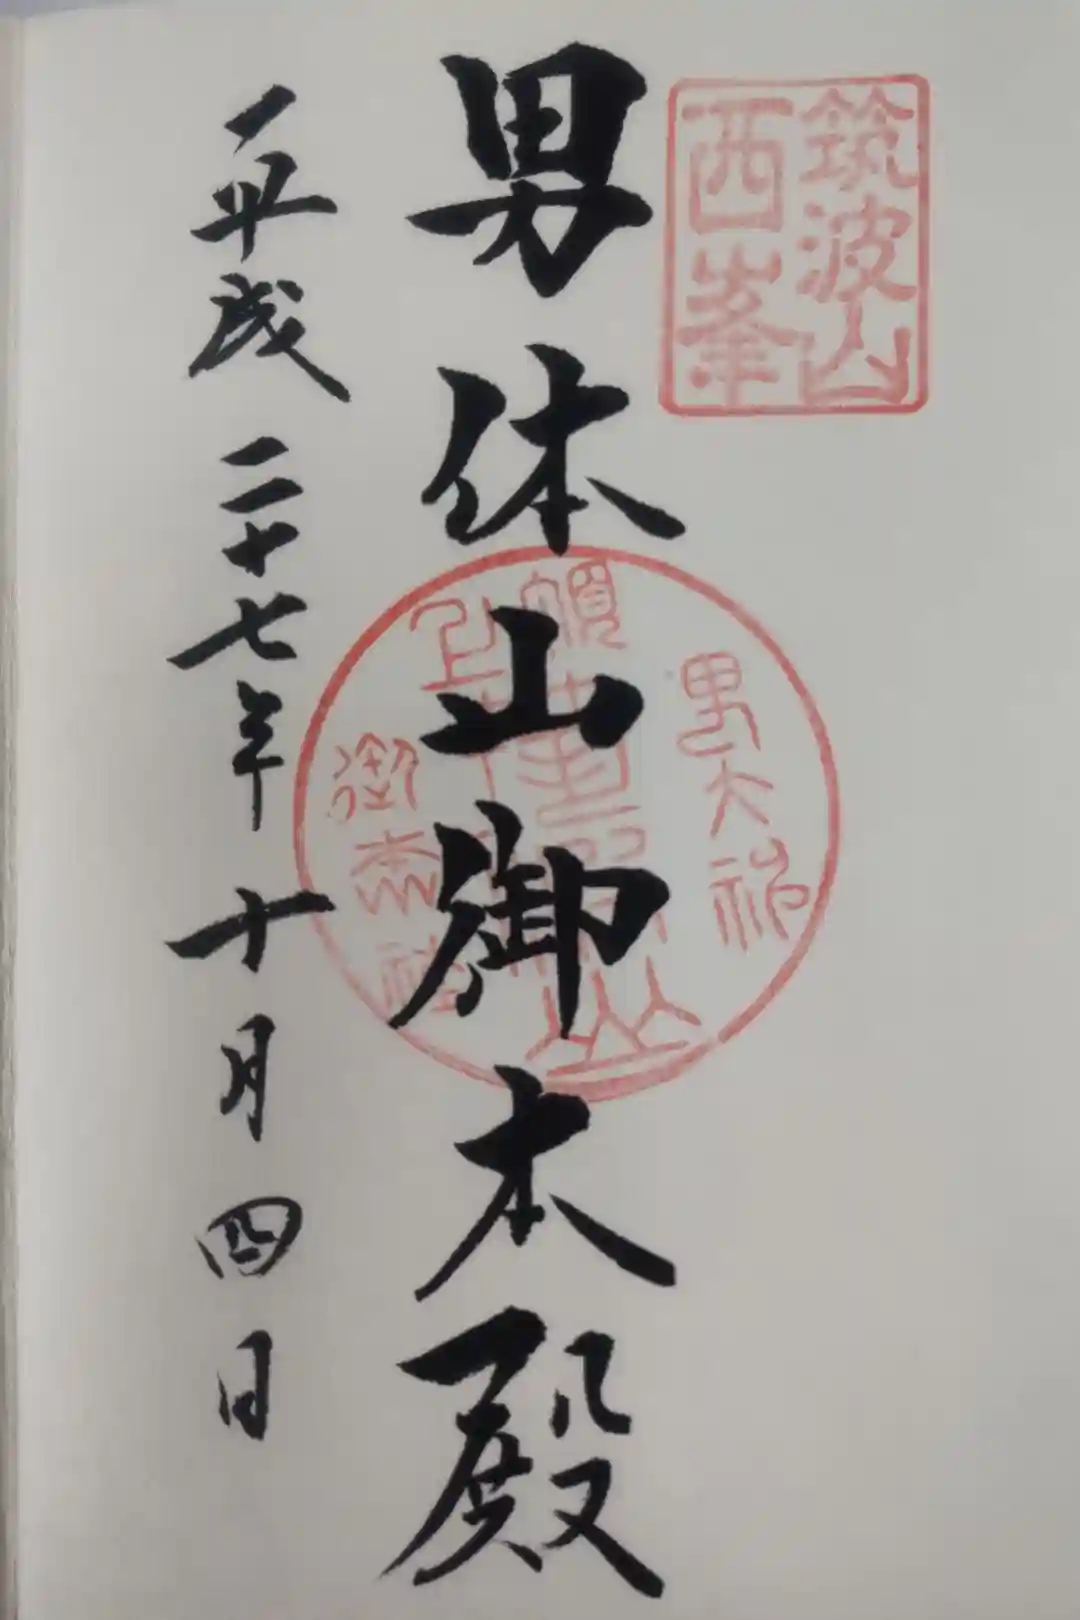 筑波山
西峯
男体山御本殿
男大神
平成二十七年十月四日